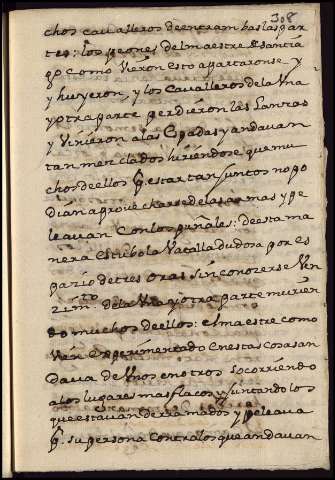 308
chos cavalleros de entrambas las par
tes: los peones del maestre de santia
go como vieron esto apartaronse y
y huyeron, y los cavalleros de la vna
y otra parte perdieron las lanzas
y vinieron a las espadas y andavan
tan mezclados hiriendose que mu
chos de ellos por estar tan juntos no po
dian aprovecharse de las armas y pe
leavan con los puñales: de esta ma
nera estubo la vatalla dudosa por es
pazio de tres oras sin conozerse ven
zim.to de la vna y otra parte murien
do muchos de ellos: el maestre como
vien experimentado en estas cosas an
dava de vnos en otros socorriendo
a los lugares mas flacos y juntando los
que estavan derramados y peleava
por su persona contra los que andavan